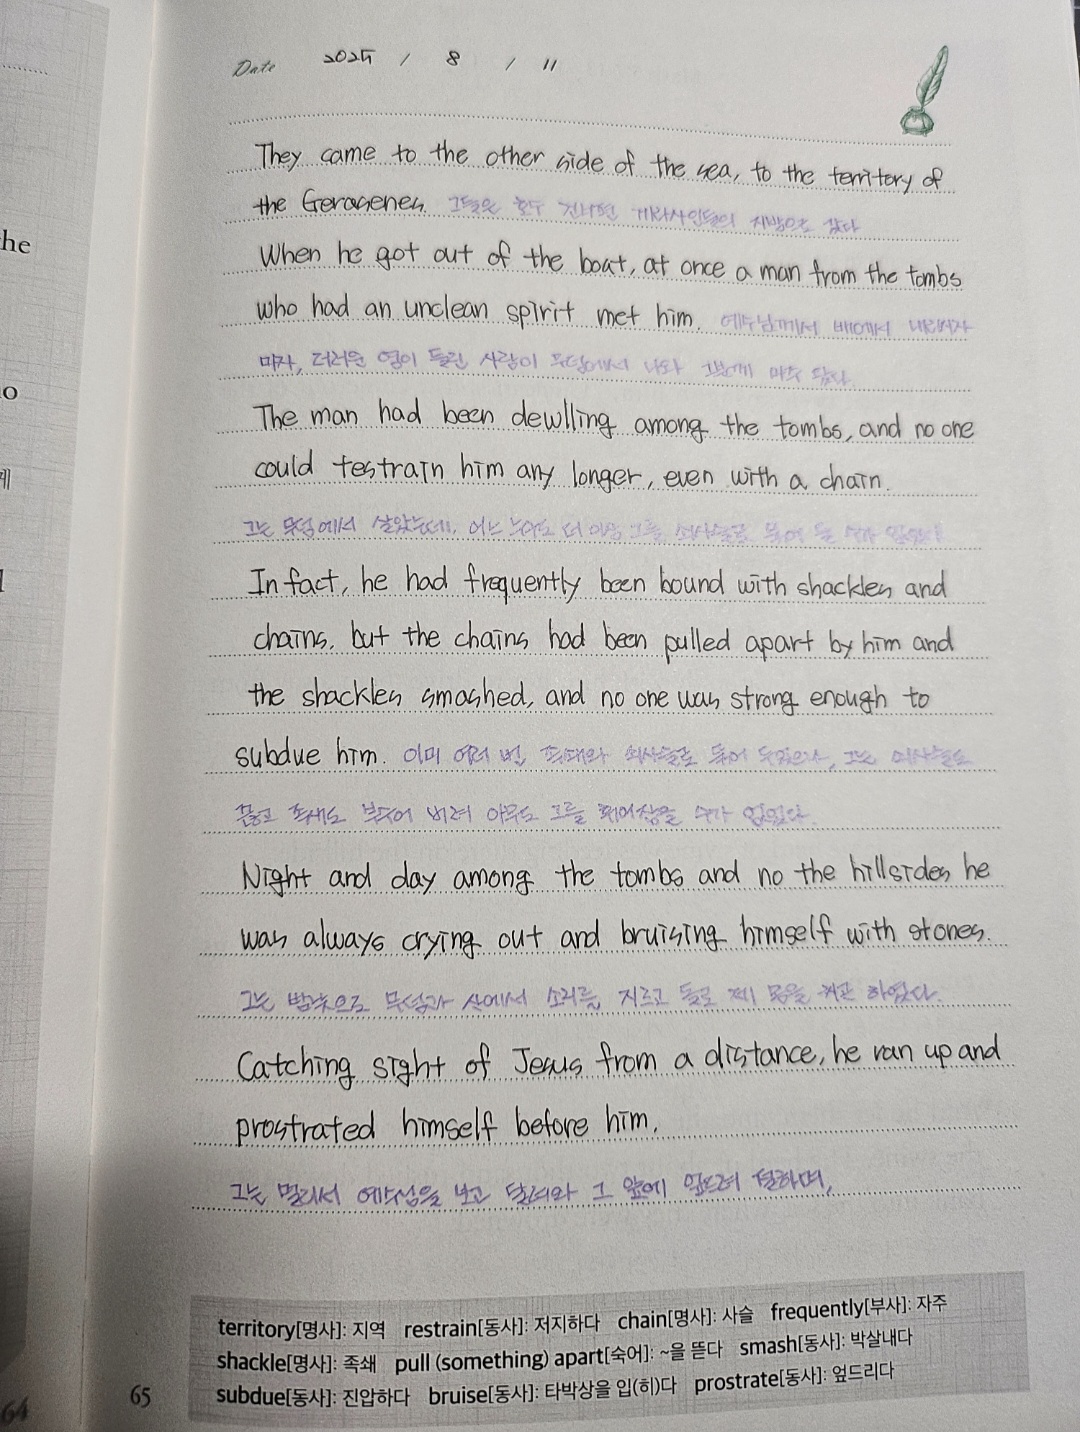 he
Date 2025 / 8 / 11
They came to the other side of the sea, to the territory of
the Gerasenes. 그들은 호수 건너편 게라사인들의 지방으로 갔다
When he got out of the boat, at once a man from the tombs
who had an unclean spirit met him. 예수님께서 배에서 내리시자
마자, 더러운 영이 들린 사람이 무덤에서 나와 그분께 마주 왔다.
The man had been dewlling among the tombs, and no one
could testrain him any longer, even with a chain.
그는 무덤에서 살았는데, 어느 누구도 더 이상 그를 쇠사슬로 묶어 둘 수가 없었다
In fact, he had frequently been bound with shackles and
chains, but the chains had been pulled apart by him and
the shackles smashed, and no one was strong enough to
subdue him. 이미 여러 번 족쇄와 쇠사슬로 묶어 두었으나, 그는 쇠사슬도
끊고 족쇄도 부수어 버려 아무도 그를 휘어잡을 수가 없었다.
Night and day among the tombs and no the hillsides he
was always crying out and bruising himself with stones.
그는 밤낮으로 무덤과 산에서 소리를 지르고 돌로 제 몸을 치곤 하였다.
Catching sight of Jesus from a distance, he ran up and
prostrated himself before him,
그는 멀리서 예수님을 보고 달려와 그 앞에 엎드려 절하며,
territory[명사]: 지역 restrain[동사]: 저지하다 chain[명사]: 사슬 frequently[부사]: 자주
shackle[명사]: 족쇄 pull (something) apart[숙어]: ~을 뜯다 smash[동사]: 박살내다
subdue[동사]: 진압하다 bruise[동사]: 타박상을 입(히)다 prostrate[동사]: 엎드리다
64
65